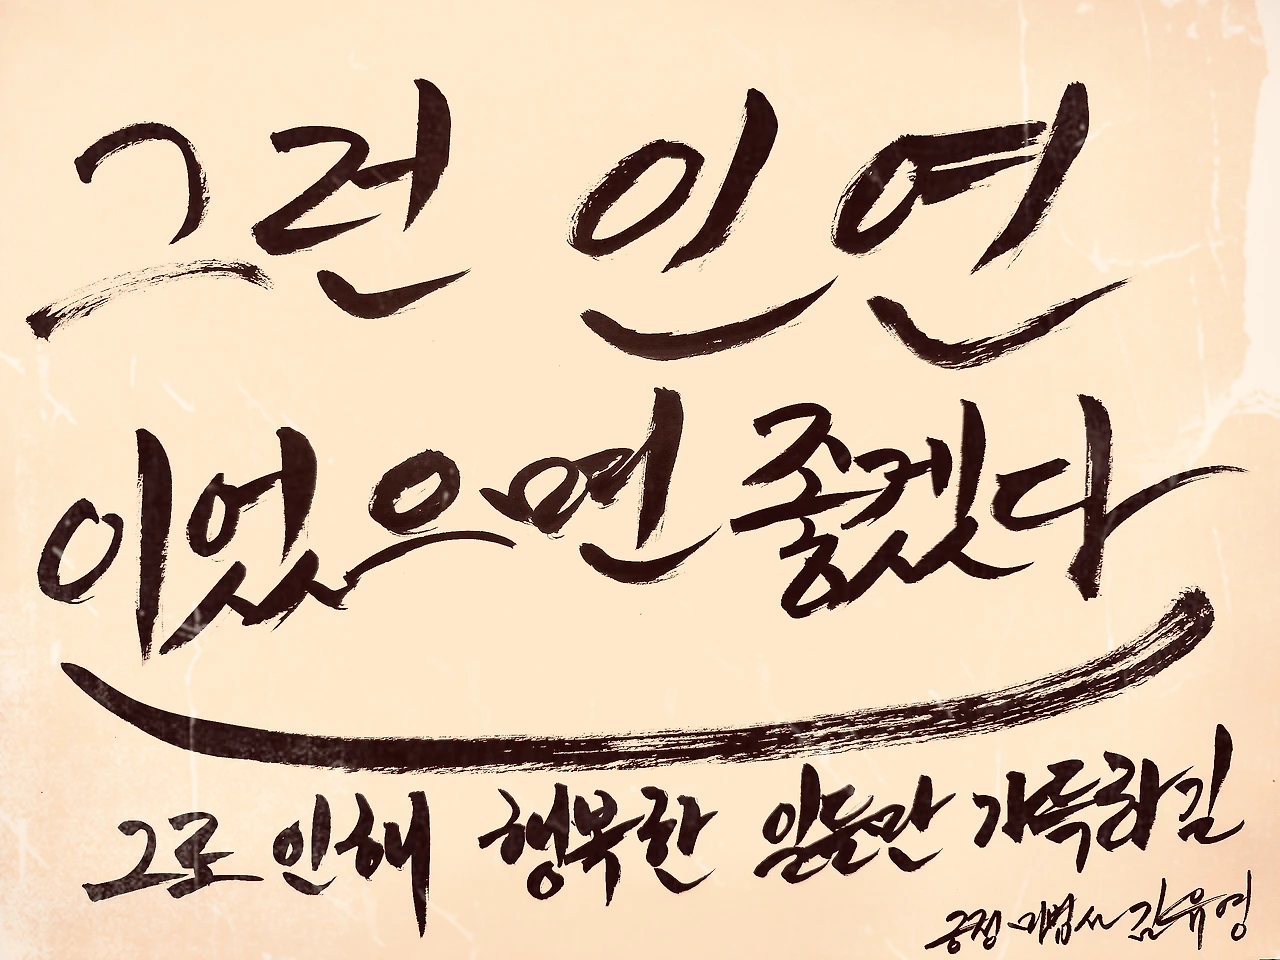 그런 인연
이었으면 좋겠다
그로 인해 행복한 일들만 가득하길
긍정 마법사 김유영